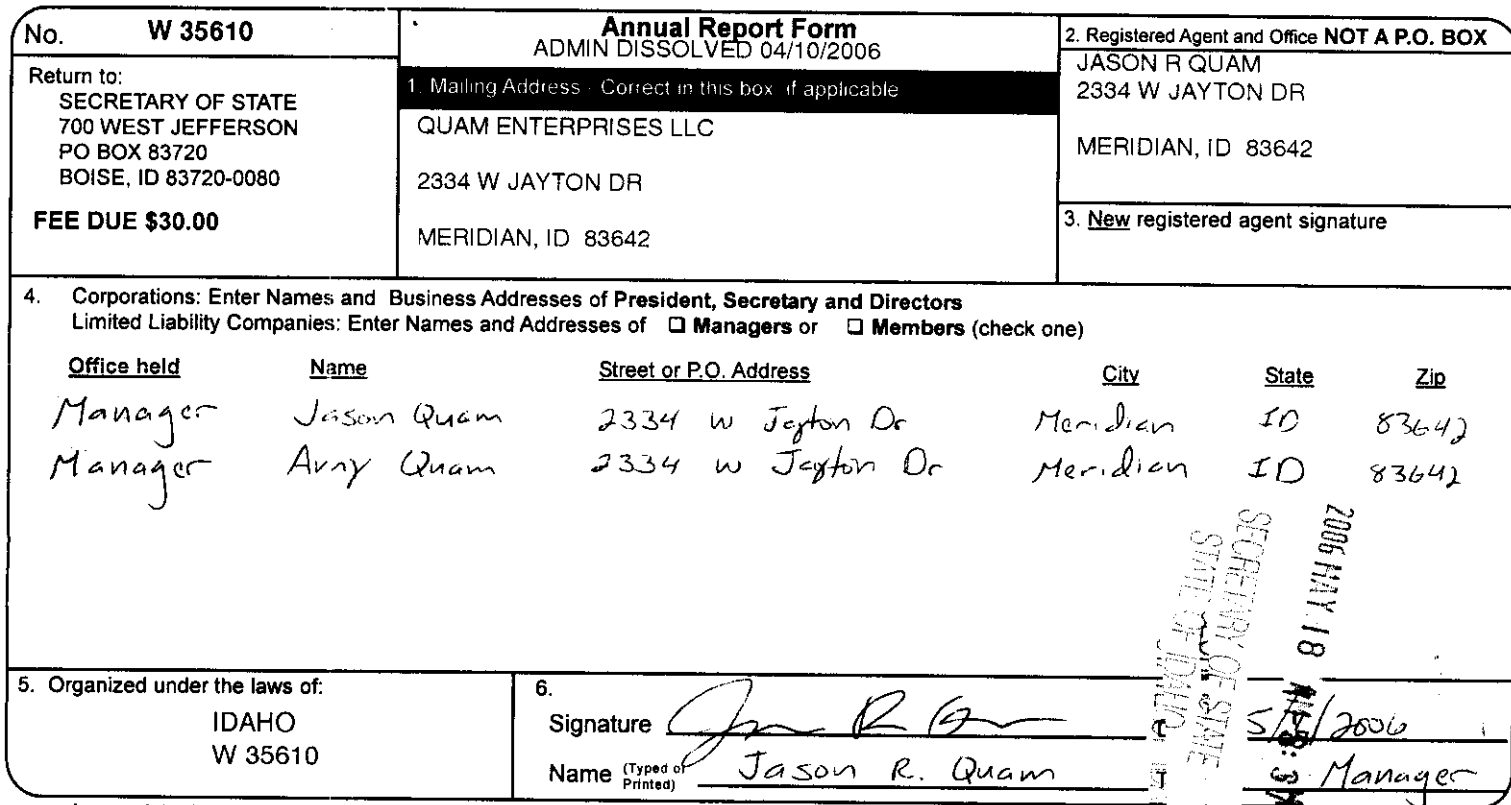 No. W 35610
Return to:
SECRETARY OF STATE
700 WEST JEFFERSON
PO BOX 83720
BOISE, ID 83720-0080
FEE DUE $30.00
Annual Report Form
ADMIN DISSOLVED 04/10/2006
1. Mailing Address - Correct in this box if applicable
QUAM ENTERPRISES LLC
2334 W JAYTON DR
MERIDIAN, ID 83642
2. Registered Agent and Office NOT A P.O. BOX
JASON R QUAM
2334 W JAYTON DR
MERIDIAN, ID 83642
3. New registered agent signature
4. Corporations: Enter Names and Business Addresses of President, Secretary and Directors
Limited Liability Companies: Enter Names and Addresses of ❑ Managers or ❑ Members (check one)
Office held Name Street or P.O. Address City State Zip
Manager Jason Quam 2334 W Jayton Dr Meridian ID 83642
Manager Amy Quam 2334 W Jayton Dr Meridian ID 83642
2006 MAY 18
SECRETARY OF STATE
STATE OF IDAHO
5. Organized under the laws of:
IDAHO
W 35610
6.
Signature 2006
Name (Typed or Printed) Jason R. Quam Manager